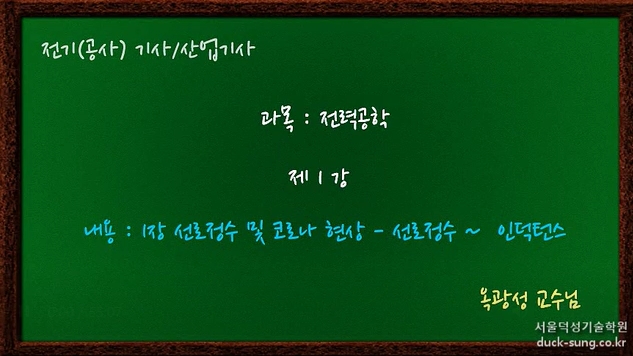 전기(공사) 기사/산업기사
과목 : 전력공학
제 1 강
내용 : 1장 선로정수 및 코로나 현상 - 선로정수 ~ 인덕턴스
옥광성 교수님
서울덕성기술학원
duck-sung.co.kr